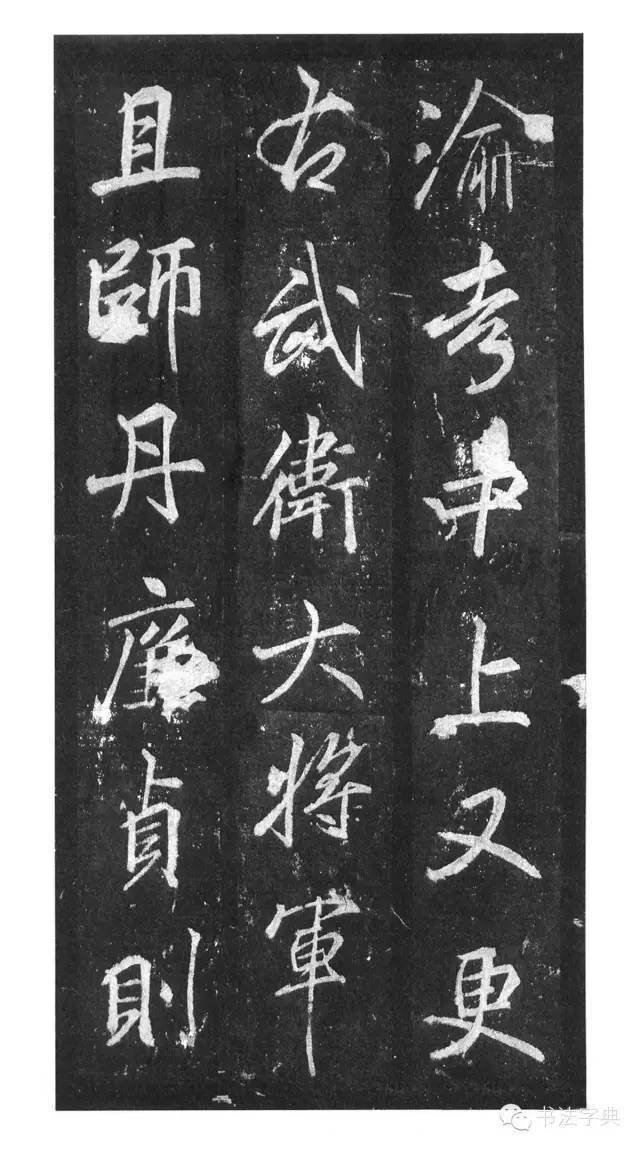 渝考中上又更
右武衛大將軍
且師丹廉貞則
书法字典